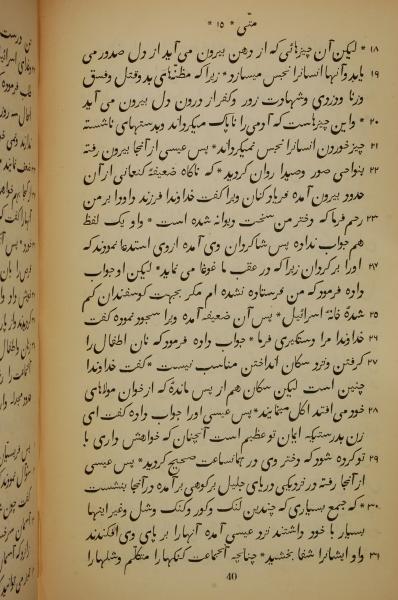 متی * ۱۵ *
۱۸ * لیکن آن چیزهائی که از دهن بیرون می آید از دل صدور می
۱۹ یابد و آنها انسانرا نجس میسازد * زیرا که مظنهای بد و قتل و فسق
وزنا ودزدی وشهادت زور وکفر از درون دل بیرون می آید
۲۰ * واین چیزهاست که آدمی را ناپاک میگرداند وبدستهای ناشسته
۲۱ چیز خوردن انسانرا نجس نمیگرداند * پس عیسی از آنجا بیرون رفته
۲۲ بنواحی صور وصیدا روان گردید * که ناگاه ضعیفهٔ کنعانی از آن
حدود بیرون آمده فریاد کنان ویرا گفت خداوندا فرزند داودا بر من
۲۳ رحم فرما که دختر من سخت دیوانه شده است * واو یک لفظ
هم جواب نداده پس شاگردان وی آمده ازوی استدعا نمودند که
۲۴ اورا برگردان زیرا که در عقب ما غوغا می نماید * لیکن او جواب
داده فرمود که من فرستاده نشده ام مگر بجهت گوسفندان گم
۲۵ شدهٔ خانهٔ اسرائیل * پس آن ضعیفه آمده ویرا سجود نموده گفت
۲۶ خداوندا مرا دستگیری فرما * جواب داده فرمود که نان اطفال را
۲۷ گرفتن ونزد سگان انداختن مناسب نیست * گفت خداوندا
چنین است لیکن سگان هم از پس ماندهٔ که از خوان مولاهای
۲۸ خود می افتد اکل مینمایند * پس عیسی اورا جواب داده گفت ای
زن بدرستیکه ایمان تو عظیم است آنچنان که خواهش داری با
۲۹ تو کرده شود که دختر وی در همانساعت صحیح گردید * پس عیسی
از آنجا رفته در نزدیکی دریای جلیل بر کوهی بر آمده در آنجا بنشست
۳۰ * که جمع بسیاری که چندین لنگ وکور وگنگ وشل وغیر اینها
بسیار با خود داشتند نزد عیسی آمده آنهارا بر پای وی افکندند
۳۱ واو ایشانرا شفا بخشید * چنانچه آنجماعت گنگهارا متکلم وشلهارا
40